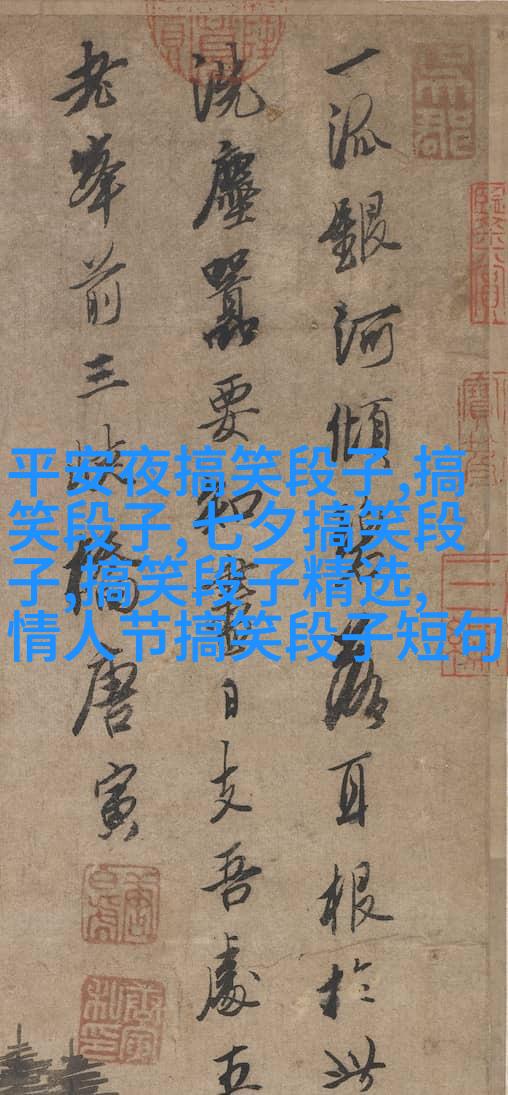 一派銀河傾碧落耳根於此
洗塵囂要知盡日支吾處五
老峯前三峽橋唐寅
平安夜搞笑段子,搞
笑段子,七夕搞笑段
子,搞笑段子精选,
情人节搞笑段子短句
唐寅私印